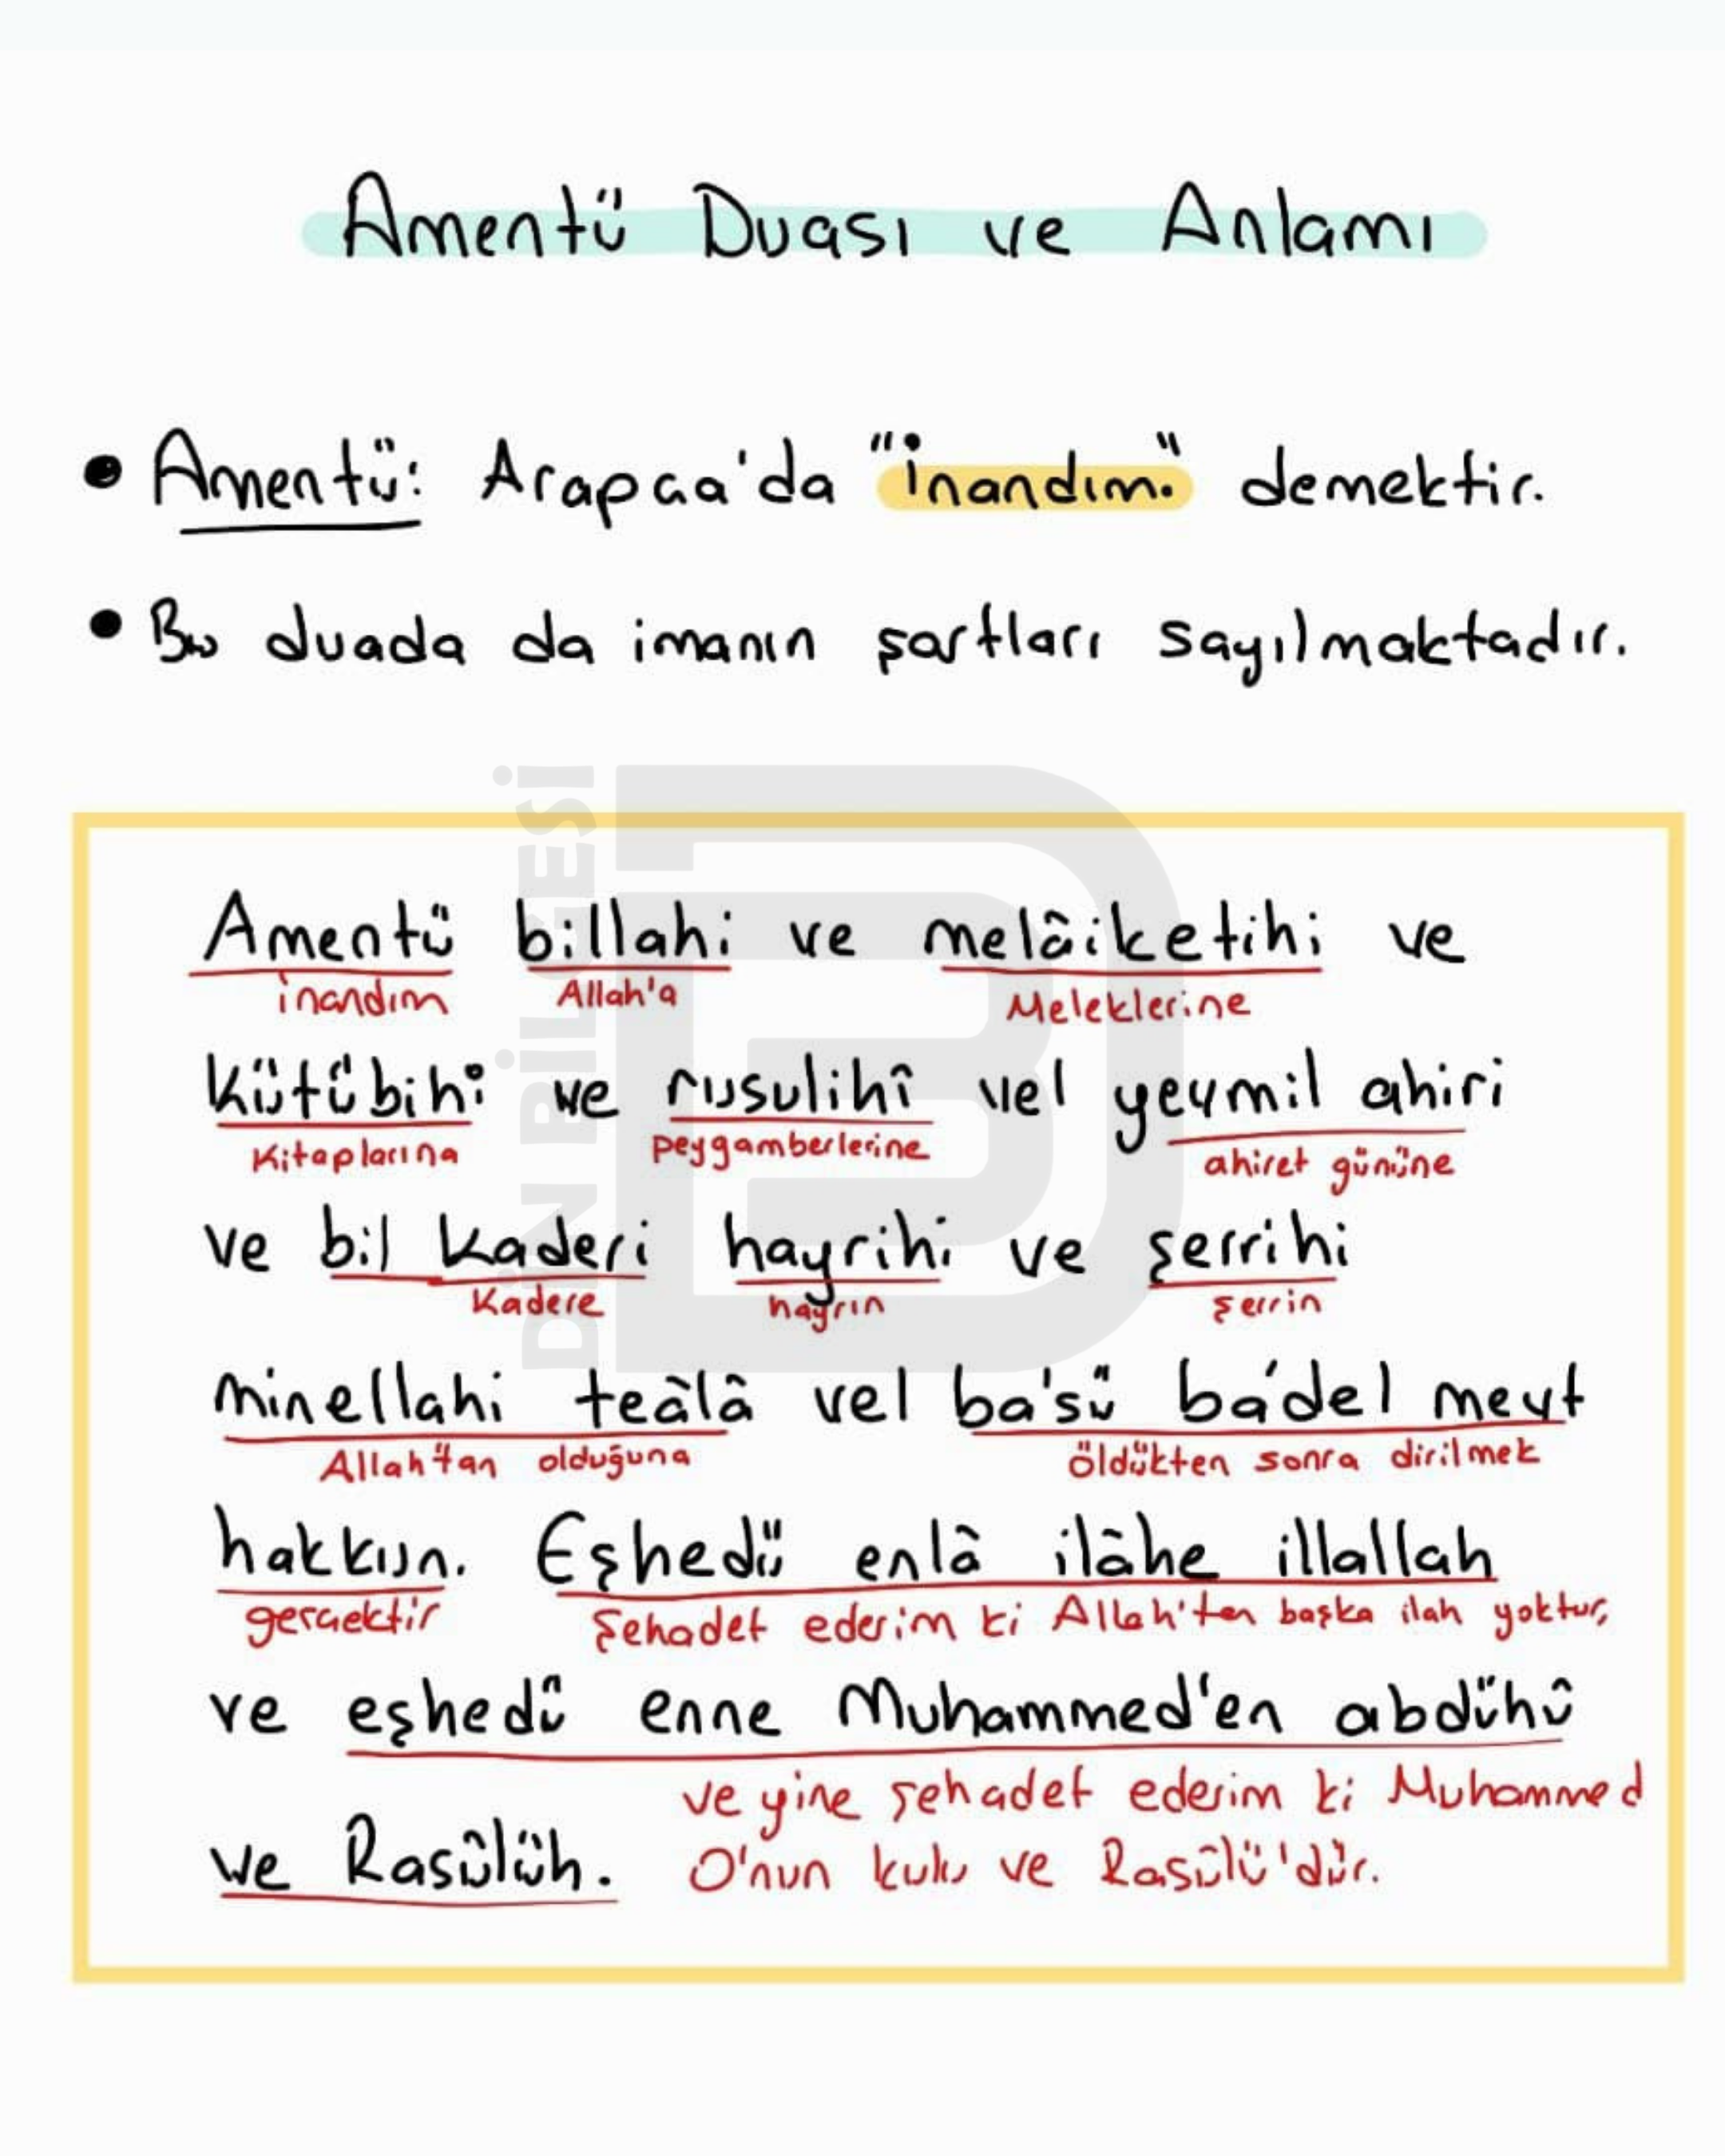 Amentü Duası ve Anlamı
• Amentü: Arapça'da "inandım." demektir.
• Bu duada da imanın şartları sayılmaktadır.
DİN BİLMESİ
Amentü billahi ve melâiketihi ve
inandım Allah'a Meleklerine
kütübihi ve rusulihî vel yevmil ahiri
Kitaplarına peygamberlerine ahiret gününe
ve bil kaderi hayrihi ve şerrihi
Kadere hayrın şerrin
minellahi teâlâ vel ba'sü ba'del mevt
Allah'tan olduğuna öldükten sonra dirilmek
hakkun. Eşhedü enlâ ilâhe illallah
gerçektir Şehadet ederim ki Allah'tan başka ilah yoktur,
ve eşhedü enne Muhammed'en abdühû
ve yine şehadet ederim ki Muhammed
ve Rasûlüh. O'nun kulu ve Rasûlü'dür.